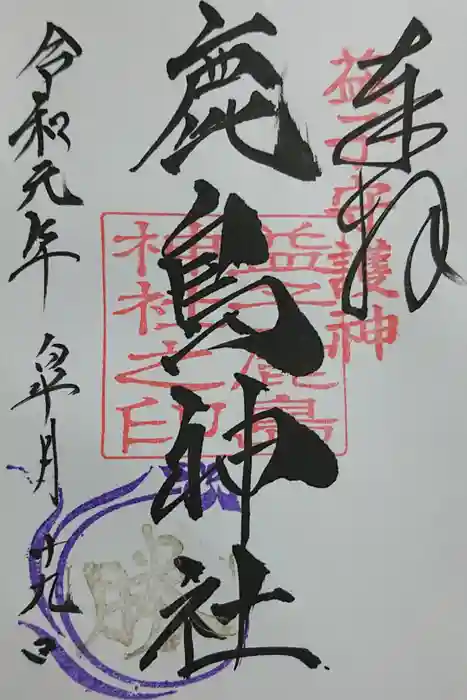 奉拝
益子守護神
鹿島神社
益子鹿島
神社之印
勝
令和元年 皐月 十九日